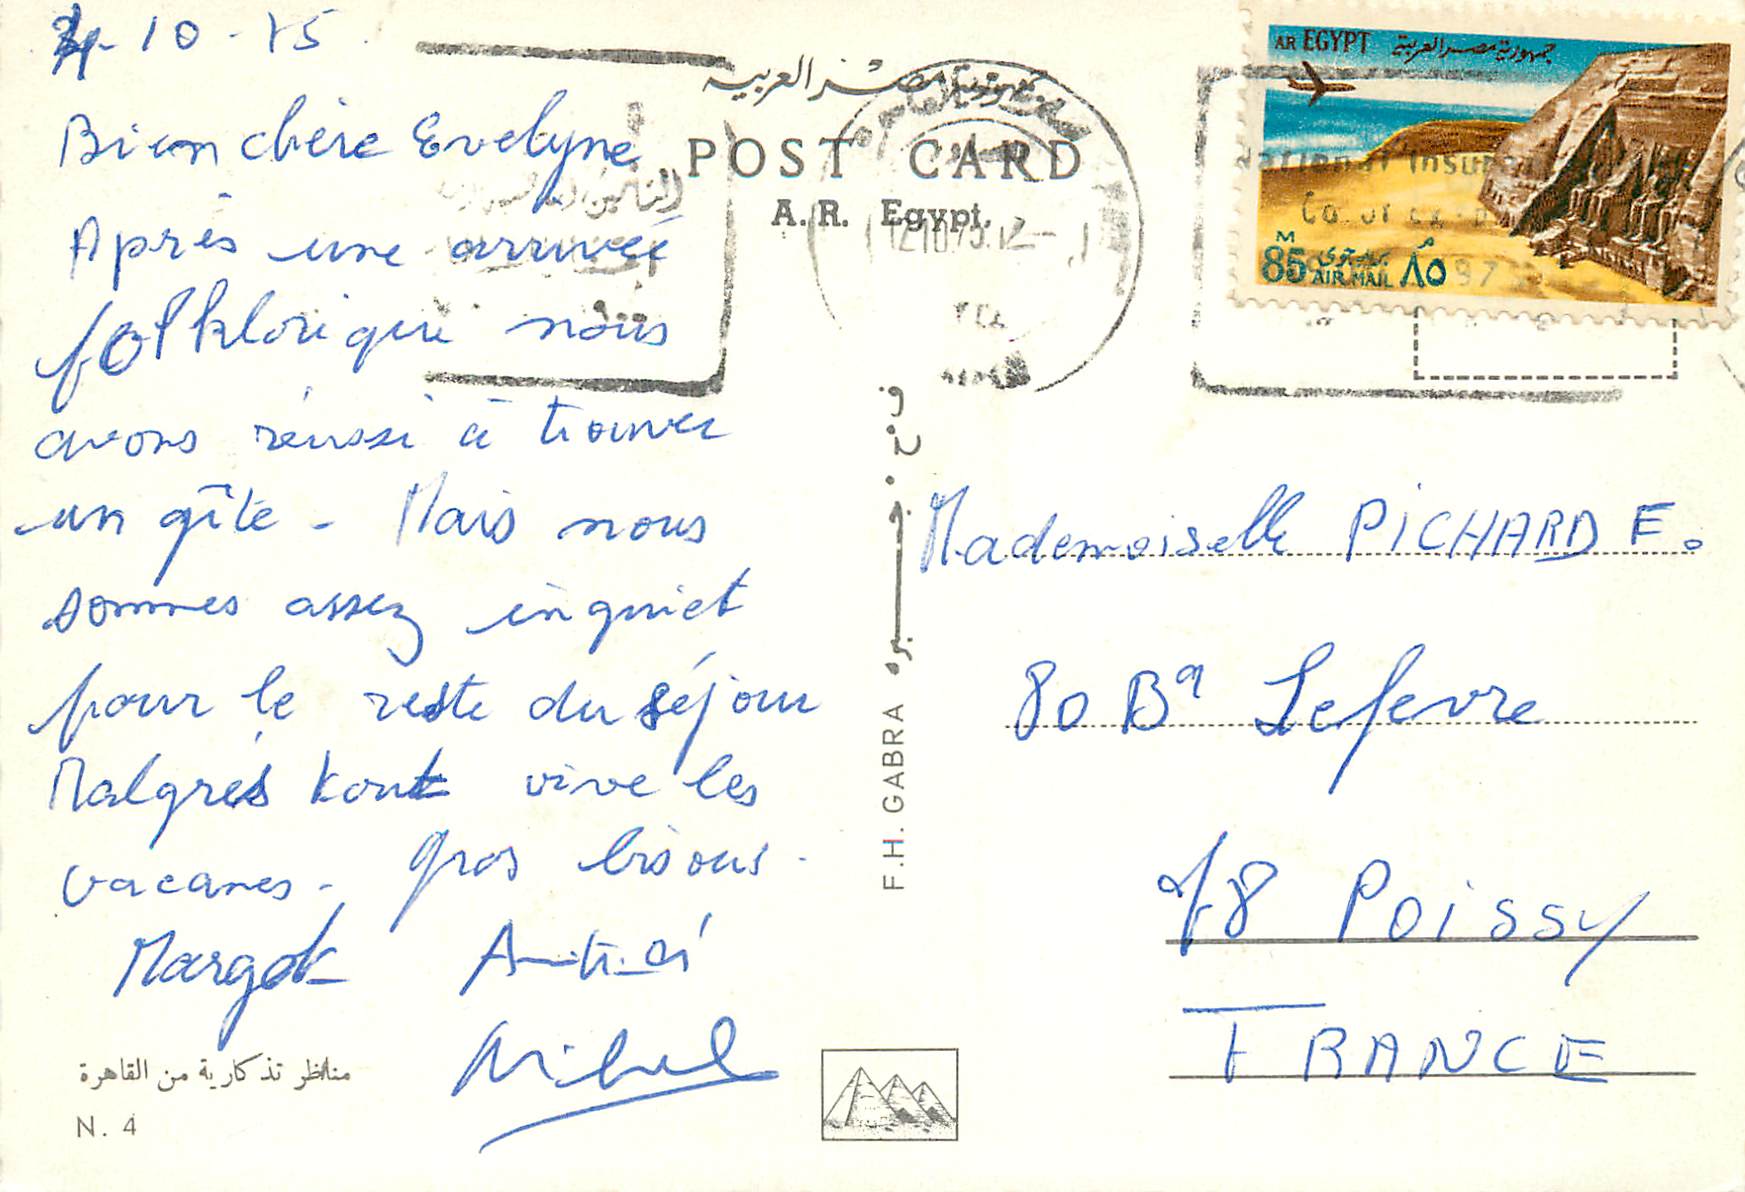 4-10-75.
Bien chère Evelyne
Après une arrivée
folklorique nous
avons réussi à trouver
un gîte - Mais nous
sommes assez inquiet
pour le reste du séjour
Malgrés tout vive les
vacances - Gros bisous.
Margot
Michel
مناظر تذكارية من القاهرة
N. 4
جمهورية مصر العربية
POST CARD
A.R. Egypt.
12.10.75.12-
F.H. GABRA
AR EGYPT جمهورية مصر العربية
National Insurance
Co. of
M
85 بريد جوى ٨٥
AIR MAIL
Mademoiselle PICHARD E.
80 Bd Lefevre
78 Poissy
FRANCE